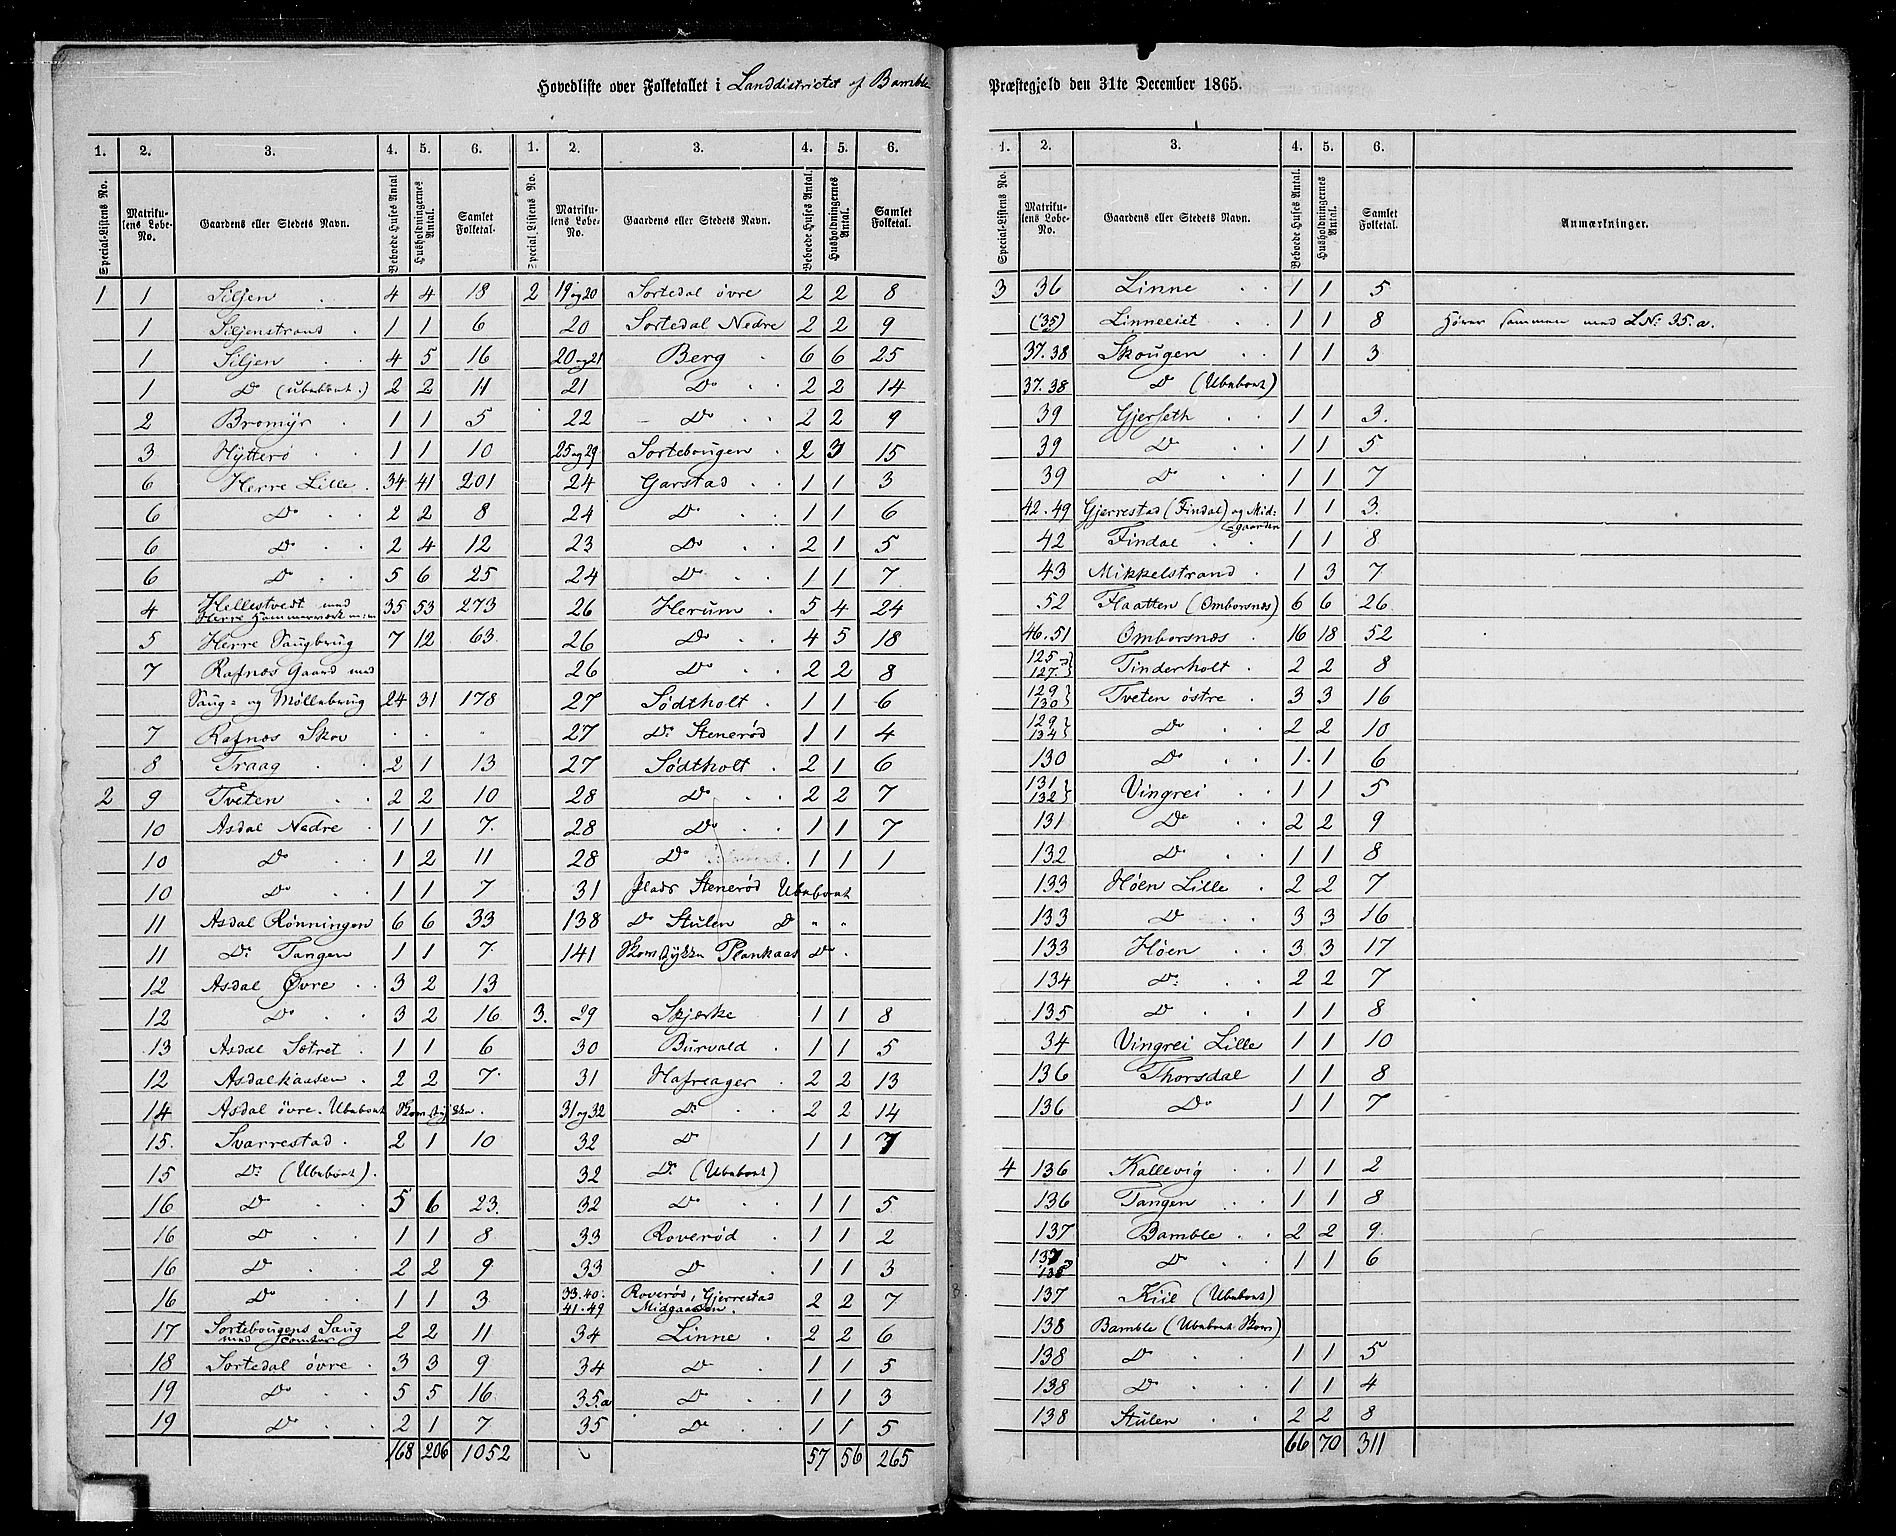 Hovedliste over Folketallet i Landdistrictet af Bamble
1. 2. 3. 4. 5. 6. 1. 2. 3. 4. 5. 6.
Special-Listens No. Matrikulens Løbe-No. Gaardens eller Stedets Navn. Beboede Huses Antal Husholdningernes Antal. Samlet Folketal. Special-Listens No. Matrikulens Løbe-No. Gaardens eller Stedets Navn. Beboede Huses Antal. Husholdningernes Antal. Samlet Folketal.
1 1 Siljen 4 4 18 2 19 og 20 Sortedal øvre 2 2 8
1 Siljenstrand 1 1 6 20 Sortedal Nedre 2 2 9
1 Siljen 4 5 16 20 og 21 Berg 6 6 25
1 Do (Ubeboet.) 2 2 11 21 Do 2 2 14
2 Bromyr 1 1 5 22 Do 2 2 9
3 Hytterø 1 1 10 25 og 29 Sortebougen 2 3 15
6 Herre Lille 34 41 201 24 Garstad 1 1 3
6 Do 2 2 8 24 Do 1 1 6
6 Do 2 4 12 23 Do 2 1 5
6 Do 5 6 25 24 Do 1 1 7
4 Hellestvedt med Herre Hammerværk m: m 35 53 273 26 Herum 5 4 24
5 Herre Saugbrug 7 12 63. 26 Do 4 5 18
7 Rafnæs Gaard med 26 Do 2 2 8
Saug- og Møllebrug 24 31 178 27 Sødtholt 1 1 6
7 Rafnæs Skov 27 Do Stenerød 1 1 4
8 Traag 2 1 13 27 Sødtholt 2 1 6
2 9 Tveten 2 2 10 28 Do 2 2 7
10 Asdal Nedre 1 1 7. 28 Do 1 1 7
10 Do 1 2 11 28 Do 1 1 1
10 Do 1 1 7 31 Stenerød Ubeboet
11 Asdal Rønningen 6 6 33 138 Do Stulen Do " "
11 Do Tangen 1 1 7. 141 Plankaas Do
12 Asdal Øvre 3 2 13
12 Do 3 2 16 3. 29 Skjerke 1 1 8
13 Asdal Sætret 1 1 6 30 Burvald 1 1 5
12 Asdalkaasen 2 2 7. 31 Hafreager 2 2 13
14 Asdal øvre. Ubeboet 31 og 32 Do 2 2 14
15. Svarrestad 2 1 10 32 Do 1 1 7
15 Do (Ubeboet). 32 Do (Ubeboet)
16 Do 5 6 23. 32 Do 1 1 5
16 Do 1 1 8 33 Roverød 1 1 2
16 Do 2 2 9 33 Do 1 1 3
16 Do 1 1 3 33.40. 41.49 Roverød, Gjerrestad Midgaarden. 2 2 7
17 Sortebougens Saug med 2 2 11 34 Linne 2 2 6
18 Sortedal øvre 3 3 9 34 Do 1 1 5
19 Do 5 5 16 35.a Do 1 1 3
19 Do 2 1 7 35 Do 1 1 5
168 206 1052 57 56 265
Præstegjeld den 31te December 1865.
1. 2. 3. 4. 5. 6.
Special-Listens No. Matrikulens Løbe-No. Gaardens eller Stedets Navn. Beboede Huses Antal. Husholdningernes Antal. Samlet Folketal. Anmærkninger.
3 36 Linne 1 1 5
(35) Linneeiet 1 1 8 Hører sammen med LNo: 35.a.
37.38 Skougen 1 1 3
37.38 Do (Ubeboet)
39 Gjerseth 1 1 3.
39 Do 1 1 5
39 Do 1 1 7
42.49 Gjerrestad (Findal) og Mid-gaarden 1 1 3
42 Findal 1 1 8
43 Mikkelstrand 1 3 7
52 Flaatten (Omborsnæs) 6 6 26
46.51 Omborsnæs 16 18 52
125 127 Tinderholt 2 2 8
129 130 Tveten østre 3 3 16
129 134 Do 2 2 10
130 Do 1 1 6
131 132 Vingrei 1 1 5
131 Do 2 2 9
132 Do 1 1 8
133 Høen Lille 2 2 7
133 Do 3 3 16
133 Høen 3 3 17
134 Do 2 2 7
135 Do 1 1 8
34 Vingrei Lille 1 1 10
136 Thorsdal 1 1 8
136 Do 1 1 7
4 136 Kallevig 1 1 2
136 Tangen 1 1 8
137 Bamble 2 2 9.
137 138 Do 1 1 6
137 Kiil (Ubeboet)
138 Bamble (Ubeboet
138 Do 1 1 5
138 Do 1 1 4
138 Stulen 2 2 8
66 70 311